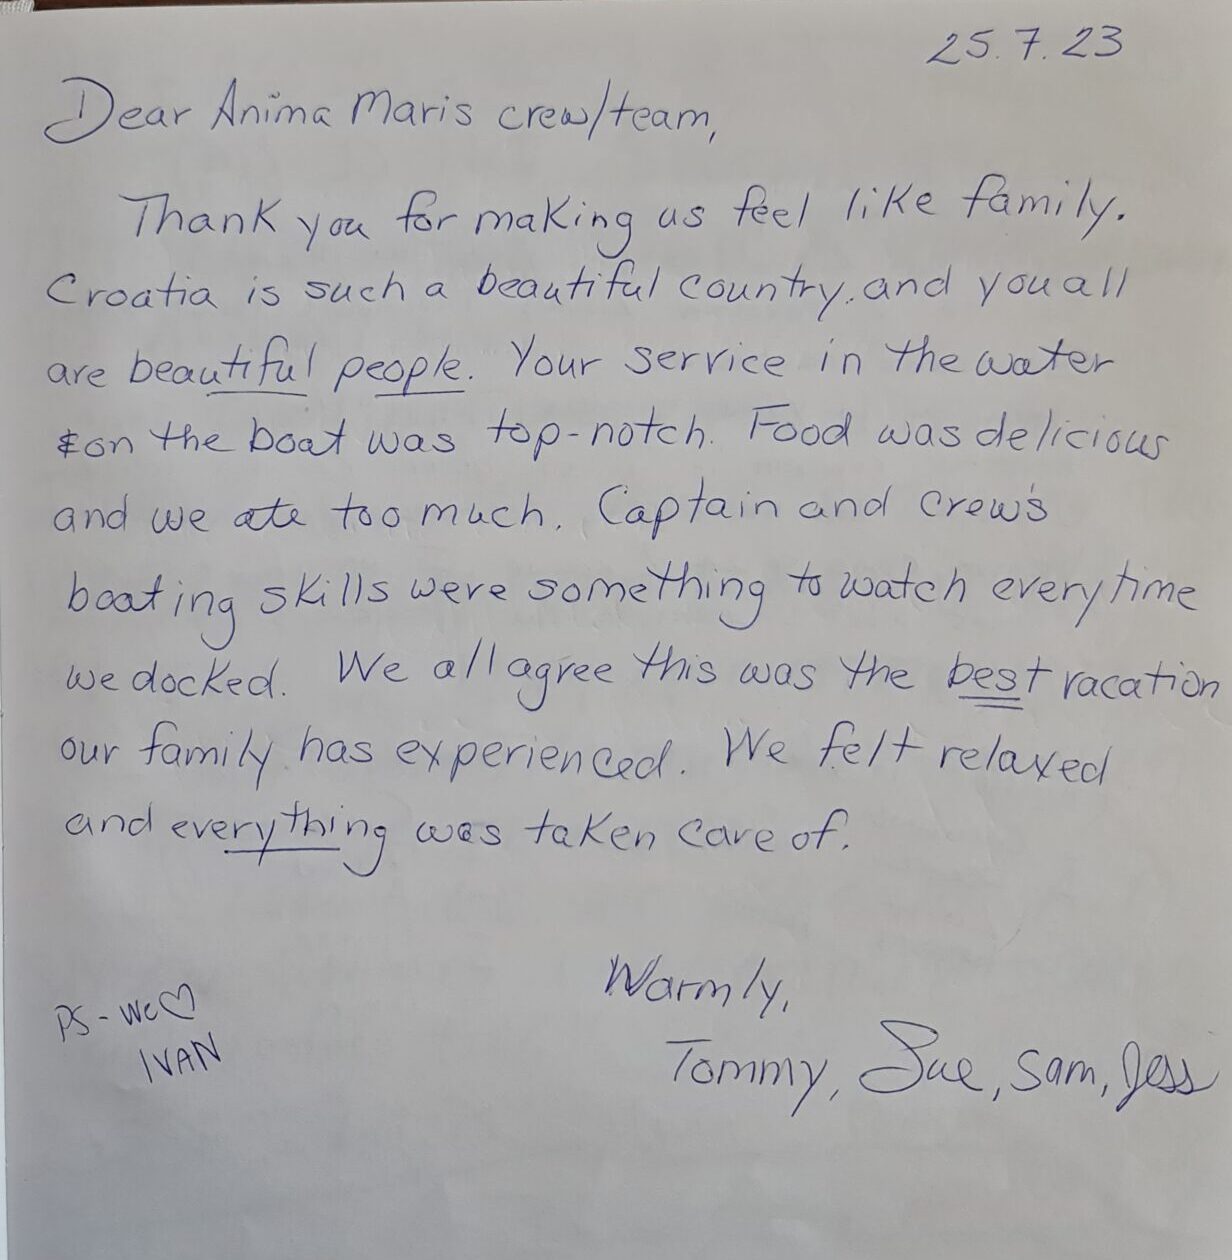 25.7.23
Dear Anima Maris crew/team,
Thank you for making us feel like family.
Croatia is such a beautiful country, and you all
are beautiful people. Your service in the water
& on the boat was top-notch. Food was delicious
and we ate too much. Captain and crew's
boating skills were something to watch everytime
we docked. We all agree this was the best vacation
our family has experienced. We felt relaxed
and everything was taken care of.
Warmly,
Tommy, Sue, Sam, Jess
PS - We ♡
IVAN